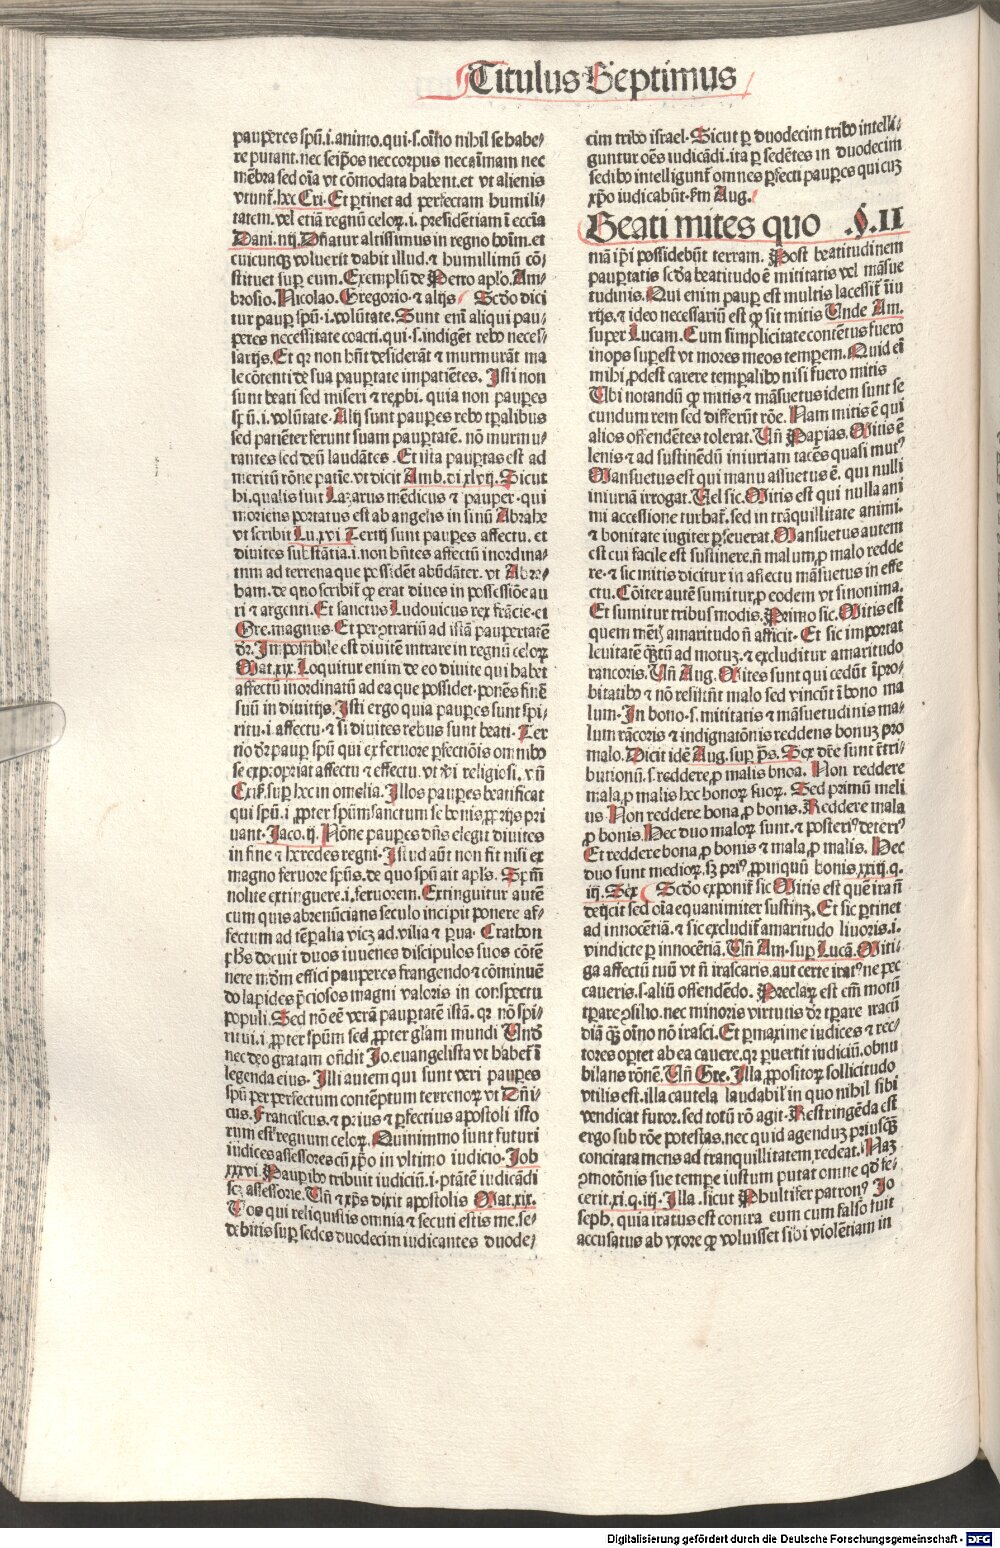 Titulus Septimus
pauperes spũ.i.animo.qui.s.oĩno nihil se habe/
re putant.nec seip̃os nec corpus nec aĩmam nec
mẽbra sed oĩa vt cõmodata habent.et vt alienis
vtunt᷑.hec Cri. Et ꝑtinet ad perfectam humili/
tatem.vel etiã regnũ celoꝝ.i.presidentiam ĩ eccl̃ia
Dani.iiij. Dñatur altissimus in regno hoĩm.et
cuicunqꝫ voluerit dabit illud.⁊ humillimũ cõ/
stituet suꝑ eum. Exemplũ de Petro ap̃lo. Am/
brosio. Nicolao. Gregorio.⁊ alijs Scd̃o dici
tur pauꝑ spũ.i.volũtate. Sunt eni aliqui pau/
peres necessitate coacti.qui.s.indigẽt rebꝰ neces/
sarijs. Et qꝛ non hñt desiderãt ⁊ murmurãt ma
le cõtenti de sua pauꝑtate impatiẽtes. Isti non
sunt beati sed miseri ⁊ reꝓbi. quia non pauꝑes
spũ.i.volũtate. Alij sunt pauꝑes rebꝰ tp̃alibus
sed patiẽter ferunt suam pauꝑtatẽ. nõ murmu/
rantes sed deũ laudãtes. Et ista pauꝑtas est ad
meritũ rõne patiẽ. vt dicit Amb.di.xlvij. Sicut
hi.qualis fuit Lazarus mẽdicus ⁊ pauper.qui
moriens portatus est ab angelis in sinũ Abrahe
vt scribit᷑ Lu.xvi Tertij sunt pauꝑes affectu. et
diuites substãtia.i.non hñtes affectũ inordina/
tum ad terrena que possidẽt abũdãter. vt Abra/
ham. de quo scribit᷑ ꝙ erat diues in possessiõe au
ri ⁊ argenti. Et sanctus Ludouicus rex frãcie.et
Gre.magnus. Et per ꝯtrariũ ad istã paupertatẽ
dr̃. Impossibile est diuitẽ intrare in regnũ celoꝝ
Mat.xix. Loquitur enim de eo diuite qui habet
affectũ inordinatũ ad ea que possidet.ponẽs finẽ
suũ in diuitijs. Isti ergo quia pauꝑes sunt spi/
ritu.i.affectu.⁊ si diuites rebus sunt beati. Ter
tio dr̃ pauꝑ spũ qui ex feruore ꝑfectiõis omnibꝰ
se expropriat affectu ⁊ effectu. vt religiosi. vñ
Criẜ. suꝑ hec in omelia. Illos pauꝑes beatificat
qui spũ.i.ꝓpter spũm sanctum se bonis ꝓprijs pri
uant. Jaco.ij. Nõne pauꝑes dñs elegit diuites
in fine ⁊ heredes regni. Istud aũt non fit nisi ex
magno feruore spũs.de quo spũ ait apl̃s. Spm̃
nolite extinguere.i.feruorem. Extinguitur autẽ
cum quis abrenũcians seculo incipit ponere af/
fectum ad tẽꝑalia vicꝫ ad vilia ⁊ ꝑua. Craton
ph̃s docuit duos iuuenes discipulos suos cõtẽ
nere mũdũm effici pauꝑeres frangendo ⁊ cõminuẽ
do lapides p̃ciosos magni valoris in conspectu
populi. Sed nõ eẽ verã pauꝑtatẽ istã. qꝛ nõ spi/
ritu.i.ꝓpter spũm sed ꝓpter glam mundi Undẽ
nec deo gratam oñdit Jo.euangelista vt habet᷑ ĩ
legenda eius. Illi autem qui sunt veri pauꝑes
spũ per perfectum contẽptum terrenoꝝ vt Dñi/
cus. Franciscus.⁊ prius ⁊ ꝑfectius apostoli isto
rum est regnum celoꝝ. Quinimmo sunt futuri
iudices assessores cũ xp̃o in vltimo iudicio. Job
xxxvi. Pauꝑibꝰ tribuit iudiciũ.i.ptãtẽ iudicãdi
scꝫ assessorie. Uñ ⁊ xp̃s dixit apostolis Mat.xix.
Uos qui reliquistis omnia ⁊ secuti estis me.se/
debitis suꝑ sedes duodecim iudicantes duode/
cim tribꝰ israel. Sicut ꝑ duodecim tribꝰ intelli/
guntur oẽs iudicãdi.ita ꝑ sedẽtes in duodecim
sedibꝰ intelligunt᷑ omnes ꝑfecti pauꝑes qui cuꝫ
xp̃o iudicabũt.ẜm Aug.
Beati mites quo .§.II
niã ip̃i possidebũt terram. Post beatitudinem
pauꝑtatis scd̃a beatitudo ẽ mititatis vel mãsue
tudinis. Qui enim pauꝑ est multis lacessit᷑ ĩiu
rijs.⁊ ideo necessariũ est ꝙ sit mitis Unde Am.
super Lucam. Cum simplicitate contẽtus fuero
inops suꝑest vt mores meos temꝑem. Quid eĩ
mihi ꝓdest carere temꝑalibꝰ nisi fuero mitis
Ubi notandũ ꝙ mitis ⁊ mãsuetus idem sunt se
cundum rem sed differũt rõe. Nam mitis ẽ qui
alios offendẽtes tolerat. Uñ Papias. Mitis ẽ
lenis ⁊ ad sustinẽdũ iniuriam tacẽs quasi mutꝰ
Mansuetus est qui manu assuetus ẽ. qui nulli
iniuriã irrogat. Uel sic. Mitis est qui nulla ani
mi accessione turbat᷑. sed in trãquillitate animi.
⁊ bonitate iugiter ꝑseuerat. Mansuetus autem
est cui facile est sustinere.ñ malum ꝓ malo redde
re.⁊ sic mitis dicitur in affectu mãsuetus in effe
ctu. Cõiter autẽ sumitur ꝓ eodem vt sinonima.
Et sumitur tribus modis. Primo sic. Mitis est
quem mẽtis amaritudo ñ afficit. Et sic importat
leuitatẽ qͣ̃tũ ad motuꝫ.⁊ excluditur amaritudo
rancoris. Uñ Aug. Mites sunt qui cedũt ĩpro/
bitatibꝰ ⁊ nõ resistũt malo sed vincũt ĩ bono ma
lum. In bono.s.mititatis ⁊ mãsuetudinis ma/
lum rãcoris ⁊ indignatõnis reddens bonuꝫ pro
malo. Dicit idẽ Aug.suꝑ p̃s. Sex dr̃e sunt retri/
butionũ.s.reddere ꝓ malis bona. Non reddere
mala ꝓ malis hec bonoꝝ suoꝝ. Sed primũ meli
us. Non reddere bona ꝓ bonis. Reddere mala
ꝓ bonis. Hec duo maloꝝ sunt.⁊ posteriꝰ deteriꝰ
Et reddere bona ꝓ bonis ⁊ mala ꝓ malis. Hec
duo sunt medioꝝ.sꝫ priꝰ ꝓpinquũ bonis.xxiij.q.
iij. Sex Scd̃o exponit᷑ sic Mitis est quẽ ira ñ
deijcit sed oĩa equanimiter sustinꝫ. Et sic ꝑtinet
ad innocẽtiã.⁊ sic excludit᷑ amaritudo liuoris.i.
vindicte ꝑ innocẽtiã. Uñ Am.suꝑ Lucã. Miti/
ga affectũ tuũ vt ñ irascaris.aut certe iratꝰ ne pec
caueris.s.aliũ offendẽdo. Preclaꝝ est em̃ motũ
tꝑare ꝯsilio.nec minoris virtutis dr̃ tꝑare iracũ
diã qͣ̃ oĩno nõ irasci. Et ꝑmaxime iudices ⁊ rec/
tores oꝑtet ab ea cauere.qꝛ ꝑuertit iudiciũ.obnu
bilans rõnẽ. Uñ Gre. Illa ꝓpositoꝝ sollicitudo
vtilis est.illa cautela laudabil᷑ in quo nihil sibi
vendicat furor.sed totũ rõ agit. Restringẽda est
ergo sub rõe potestas.nec quid agenduꝫ priusqͣ̃
concitata mens ad tranquillitatem redeat. Naꝫ
ꝯmotõnis sue tempe iustum putat omne qd̃ fe/
cerit.xi.q.iij. Illa.sicut Phultifer patronꝰ Jo
seph. quia iratus est contra eum cum falso fuit
accusatus ab vxore ꝙ voluisset sibi violẽtiam in
Digitalisierung gefördert durch die Deutsche Forschungsgemeinschaft - DFG